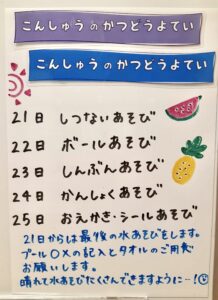 こんしゅうのかつどうよてい
こんしゅうのかつどうよてい
21日 しつないあそび
22日 ボールあそび
23日 しんぶんあそび
24日 かんしょくあそび
25日 おえかき・シールあそび
21日からは最後の水あそびをします。
プール〇×の記入とタオルのご用意
お願いします。
晴れて水あそびたくさんできますように…!